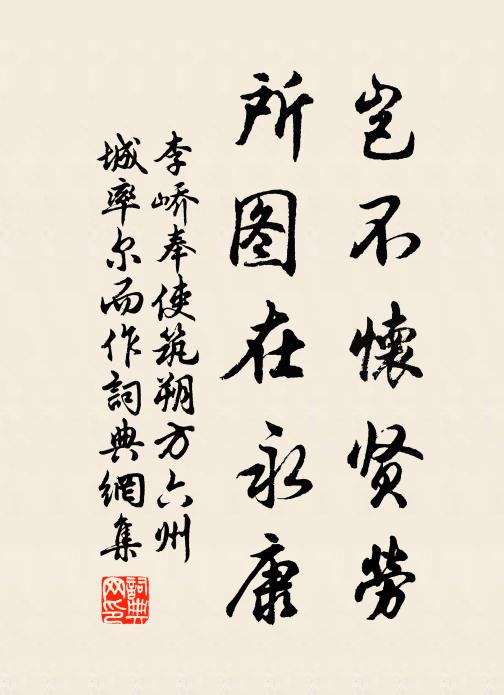 岂不懷贤勞
所图在永康
李峤奉使筑朔方六州
城率尔而作詞典網集
詞典
网印